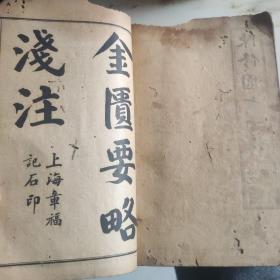 金匱要略
淺注
上海章福
記石印